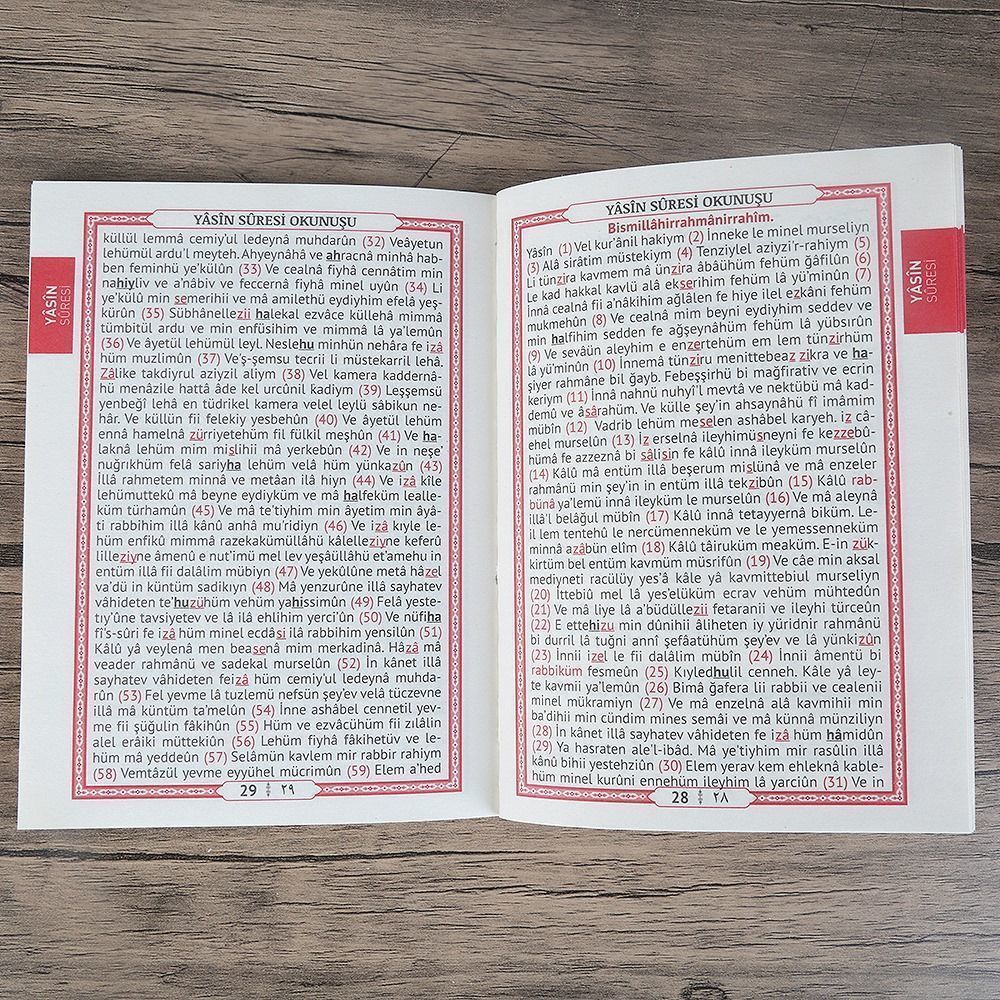 YÂSÎN SÛRESİ OKUNUŞU
Bismillâhirrahmânirrahîm.
Yâsîn (1) Vel kur'ânil hakiym (2) İnneke le minel murseliyn
(3) Alâ sirâtim müstekiym (4) Tenziylel aziyzi'r-rahiym (5)
Li tünzira kavmem mâ ünzira âbâühüm fehüm ğafilûn (6)
Le kad hakkal kavlü alâ ekserihim fehüm lâ yü'minûn (7)
İnnâ cealnâ fii a'nâkihim ağlâlen fe hiye ilel ezkâni fehüm
mukmehûn (8) Ve cealnâ mim beyni eydiyhim seddev ve
min halfihim sedden fe ağşeynâhüm fehüm lâ yübsırûn
(9) Ve sevâün aleyhim e enzertehüm em lem tünzirhüm
lâ yü'minûn (10) İnnemâ tünziru menittebeaz zikra ve ha-
şiyer rahmâne bil ğayb. Febeşşirhü bi mağfirativ ve ecrin
keriym (11) İnnâ nahnü nuhyi'l mevtâ ve nektübü mâ kad-
demû ve âsârahüm. Ve külle şey'in ahsaynâhü fî imâmim
mübîn (12) Vadrib lehüm meselen ashâbel karyeh. iz câ-
ehel murselûn (13) İz erselnâ ileyhimüsneyni fe kezzebû-
hümâ fe azzeznâ bi sâlisin fe kâlû innâ ileyküm murselûn
(14) Kâlû mâ entüm illâ beşerum mislünâ ve mâ enzeler
rahmânü min şey'in in entüm illâ tekzibûn (15) Kâlû rab-
bünâ ya'lemü innâ ileyküm le murselûn (16) Ve mâ aleynâ
illâ'l belâğul mübîn (17) Kâlû innâ tetayyernâ biküm. Le-
il lem tentehû le nercümenneküm ve le yemessenneküm
minnâ azâbün elîm (18) Kâlû tâiruküm meaküm. E-in zük-
kirtüm bel entüm kavmüm müsrifûn (19) Ve câe min aksal
mediyneti racülüy yes'â kâle yâ kavmittebiul murseliyn
(20) İttebiû mel lâ yes'elüküm ecrav vehüm mühtedûn
(21) Ve mâ liye lâ a'büdüllezii fetaranii ve ileyhi türceûn
(22) E ettehizu min dûnihii âliheten iy yüridnir rahmânü
bi durril lâ tuğni annî şefâatühüm şey'ev ve lâ yünkizûn
(23) İnnii izel le fii dalâlim mübîn (24) İnnii âmentü bi
rabbiküm fesmeûn (25) Kıyledhulil cenneh. Kâle yâ ley-
te kavmii ya'lemûn (26) Bimâ ğafera lii rabbii ve cealenii
minel mükramiyn (27) Ve mâ enzelnâ alâ kavmihii min
ba'dihii min cündim mines semâi ve mâ künnâ münziliyn
(28) İn kânet illâ sayhatev vâhideten fe izâ hüm hâmidûn
(29) Ya hasraten ale'l-ibâd. Mâ ye'tiyhim mir rasûlin illâ
kânû bihii yestehziûn (30) Elem yerav kem ehleknâ kable-
hüm minel kurûni ennehüm ileyhim lâ yarciûn (31) Ve in
28 ٢٨
YÂSÎN
SÛRESİ
YÂSÎN SÛRESİ OKUNUŞU
küllül lemmâ cemiy'ul ledeynâ muhdarûn (32) Veâyetun
lehümül ardu'l meyteh. Ahyeynâhâ ve ahracnâ minhâ hab-
ben feminhü ye'külûn (33) Ve cealnâ fiyhâ cennâtim min
nahiyliv ve a'nâbiv ve feccernâ fiyhâ minel uyûn (34) Li
ye'külû min semerihii ve mâ amilethü eydiyhim efelâ yeş-
kürûn (35) Sübhânellezii halekal ezvâce küllehâ mimmâ
tümbitül ardu ve min enfüsihim ve mimmâ lâ ya'lemûn
(36) Ve âyetül lehümül leyl. Neslehu minhün nehâra fe izâ
hüm muzlimûn (37) Ve'ş-şemsu tecrii li müstekarril lehâ.
Zâlike takdiyrul aziyzil aliym (38) Vel kamera kaddernâ-
hü menâzile hattâ âde kel urcûnil kadiym (39) Leşşemsü
yenbeğî lehâ en tüdrikel kamera velel leylü sâbikun ne-
hâr. Ve küllün fii felekiy yesbehûn (40) Ve âyetül lehüm
ennâ hamelnâ zürriyetehüm fil fülkil meşhûn (41) Ve ha-
laknâ lehüm mim mislihii mâ yerkebûn (42) Ve in neşe'
nuğrıkhüm felâ sariyha lehüm velâ hüm yünkazûn (43)
İllâ rahmetem minnâ ve metâan ilâ hiyn (44) Ve izâ kîle
lehümuttekû mâ beyne eydiyküm ve mâ halfeküm lealle-
küm türhamûn (45) Ve mâ te'tiyhim min âyetim min âyâ-
ti rabbihim illâ kânû anhâ mu'ridiyn (46) Ve izâ kıyle le-
hüm enfikû mimmâ razekakümüllâhü kâlelleziyne keferû
lilleziyne âmenû e nut'imü mel lev yeşâüllâhü et'amehu in
entüm illâ fii dalâlim mübiyn (47) Ve yekûlûne metâ hâzel
va'dü in küntüm sadikıyn (48) Mâ yenzurûne illâ sayhatev
vâhideten te'huzühüm vehüm yahissimûn (49) Felâ yeste-
tıy'ûne tavsiyetev ve lâ ilâ ehlihim yerci'ûn (50) Ve nüfiha
fî's-sûri fe izâ hüm minel ecdâsi ilâ rabbihim yensilûn (51)
Kâlû yâ veylenâ men beasenâ mim merkadinâ. Hâzâ mâ
veader rahmânü ve sadekal murselûn (52) İn kânet illâ
sayhatev vâhideten feizâ hüm cemiy'ul ledeynâ muhda-
rûn (53) Fel yevme lâ tuzlemü nefsün şey'ev velâ tüczevne
illâ mâ küntüm ta'melûn (54) İnne ashâbel cennetil yev-
me fii şüğulin fâkihûn (55) Hüm ve ezvâcühüm fii zılâlin
alel erâiki müttekiûn (56) Lehüm fiyhâ fâkihetüv ve le-
hüm mâ yeddeûn (57) Selâmün kavlem mir rabbir rahiym
(58) Vemtâzül yevme eyyühel mücrimûn (59) Elem a'hed
29 ٢٩
YÂSÎN
SÛRESİ